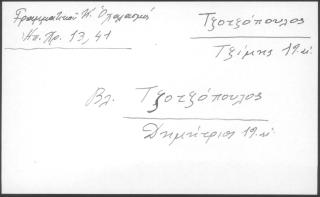 Γραμματικοῦ Κ. Ὁπλαρχηγοί
Ἠπ. Πρ. 13, 41
Τζοτζόπουλος
Τζίμης 19.αἰ
Βλ. Τζοτζόπουλος
Δημήτριος 19.αἰ